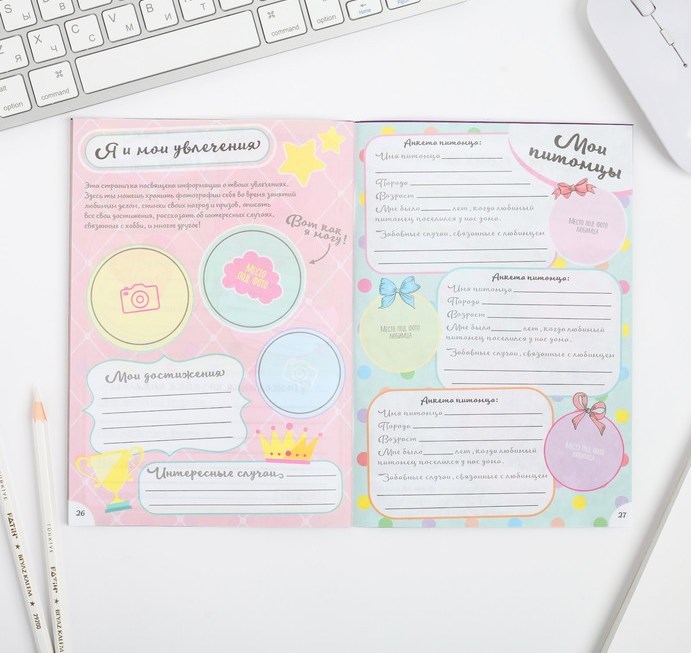 command
option
З
Х
command
Ю
option
command
Я и мои увлечения
Эта страничка посвящена информации о твоих увлечениях.
Здесь ты можешь хранить фотографии себя во время занятий
любимым делом, снимки своих наград и призов, описать
все свои достижения, рассказать об интересных случаях,
связанных с хобби, и многое другое!
Вот как
я могу!
Место
под фото
Мои достижения
Интересные случаи
26
Мои
питомцы
Анкета питомца:
Имя питомца
Порода
Возраст
Мне было лет, когда любимый
питомец поселился у нас дома.
Забавные случаи, связанные с любимцем
Место под фото
любимца
Анкета питомца:
Имя питомца
Порода
Возраст
Мне было лет, когда любимый
питомец поселился у нас дома.
Забавные случаи, связанные с любимцем
Место под фото
любимца
Анкета питомца:
Имя питомца
Порода
Возраст
Мне было лет, когда любимый
питомец поселился у нас дома.
Забавные случаи, связанные с любимцем
Место под фото
любимца
27
TÜRKİYE
FATİH
BEYAZ KALEM
TÜRKİYE
FATİH
BEYAZ KALEM